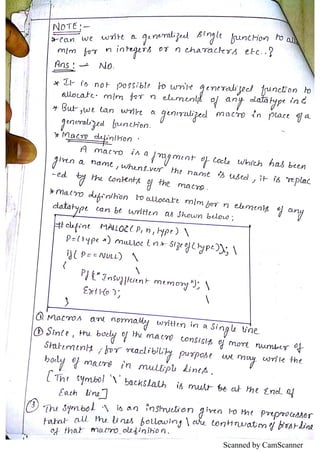 NOTE :-
* can we write a generalized single function to all
m/m for n integers or n characters etc..?
Ans :- No.
* It is not possible to write generalized function to
allocate m/m for n elements of any datatype in C
* But, we can write a generalized macro in place of a
generalized function.
* Macro definition.
A macro is a fragment of code which has been
given a name, whenever the name is used, it is replac
-ed by the contents of the macro.
* Macro definition to allocate m/m for n elements of any
datatype can be written as shown below:
# define MALLOC(P,n,type) \
P=(type *) malloc (n * sizeof(type)); \
if( P==NULL) \
{ \
Pf("Insufficient memory"); \
Exit(0); \
}
① Macros are normally written in a single line
② Since, the body of the macro consists of more number of
statements, for readibility purpose we may write the
body of macro in multiple lines.
[The symbol '\' backslash is must be at the end of
Each line]
③ The symbol \ is an instruction given to the preprocessor
that all the lines following \ are continuation of first line
of that macro definition.
Scanned by CamScanner